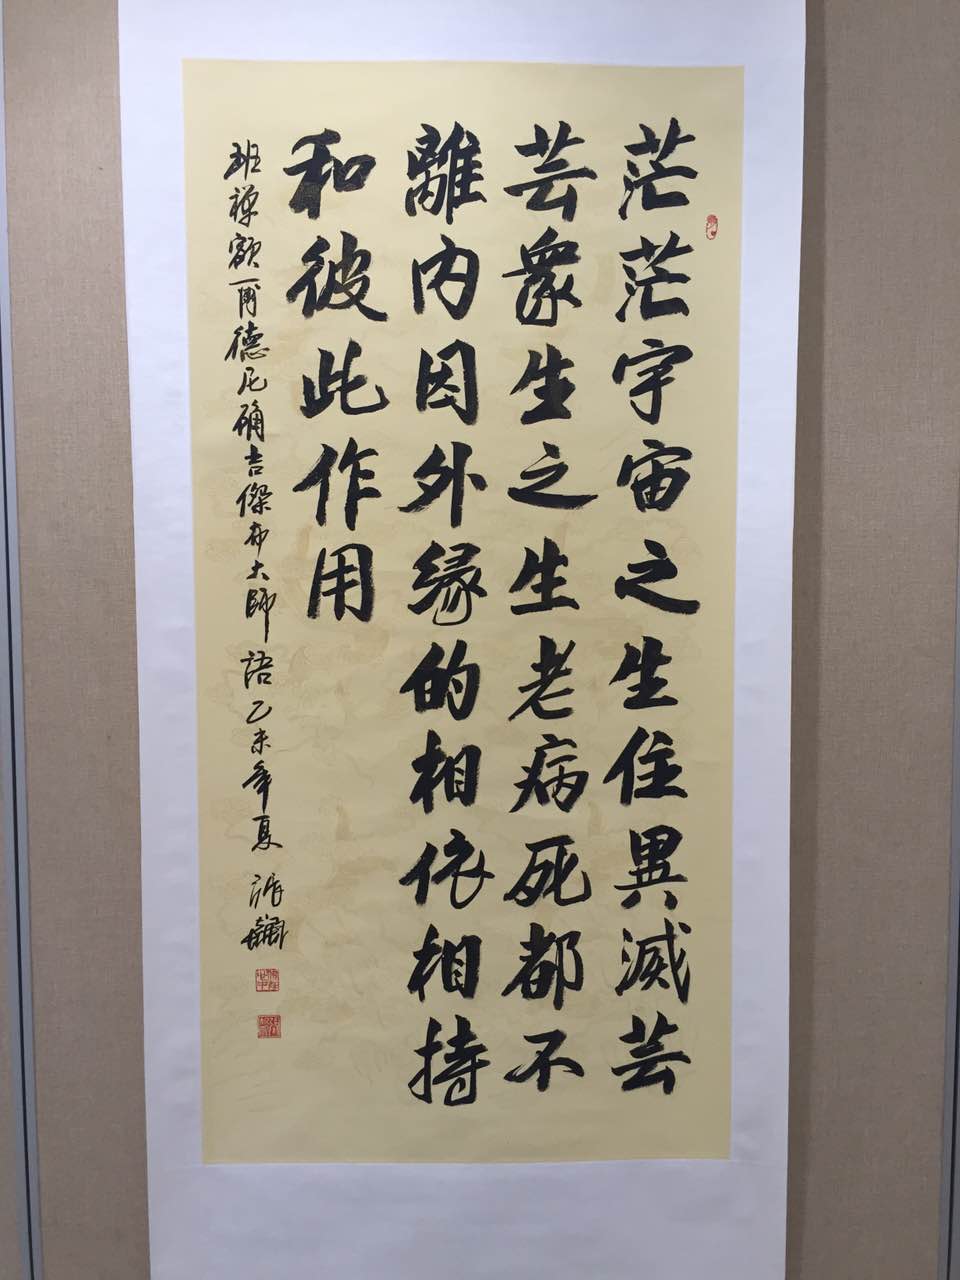 茫茫宇宙之生住異滅芸
芸衆生之生老病死都不
離内因外緣的相依相持
和彼此作用
班禅额爾德尼确吉傑布大師語乙未年夏